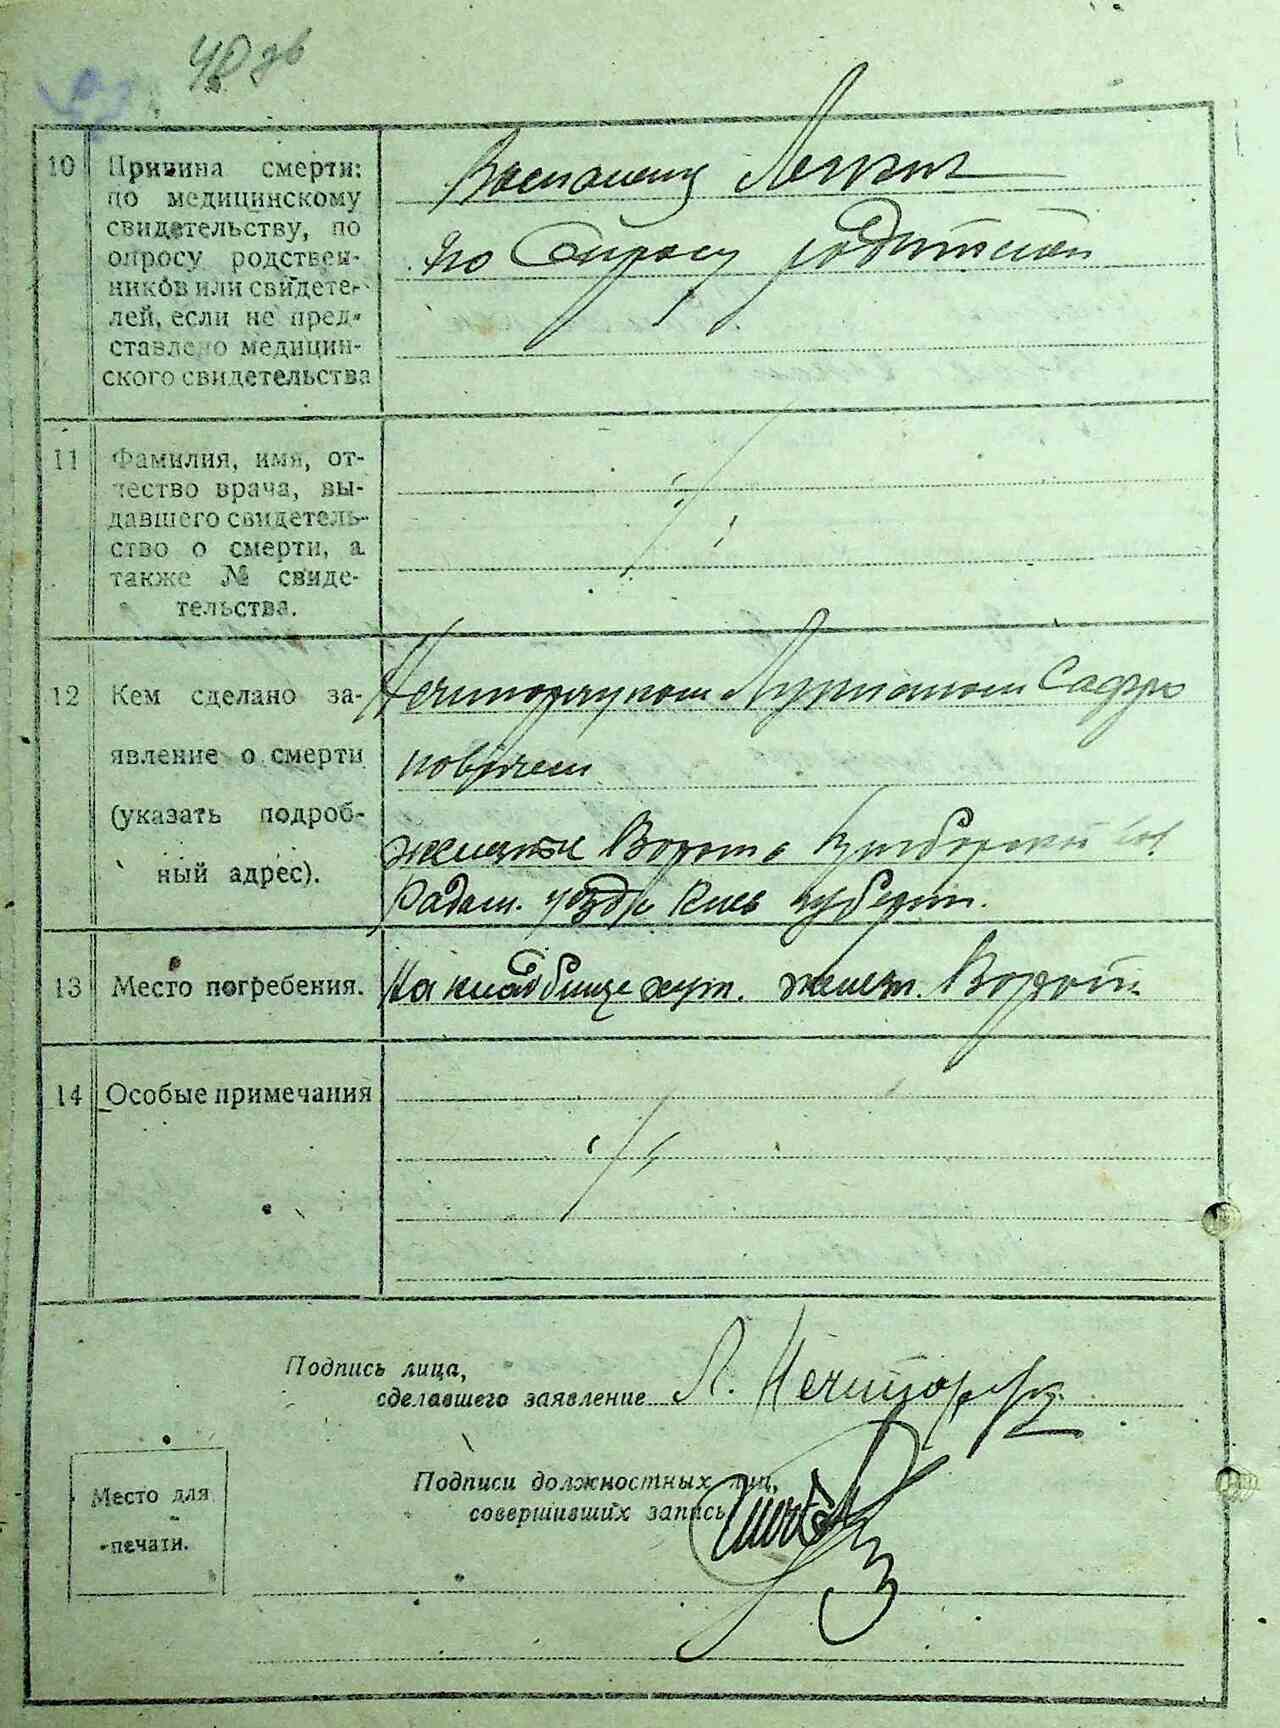 40 зв
10 Причина смерти:
по медицинскому
свидетельству, по
опросу родствен-
ников или свидете-
лей, если не пред-
ставлено медицин-
ского свидетельства
Воспаления Легких
по Опросу родителей
11 Фамилия, имя, от-
чество врача, вы-
давшего свидетель-
ство о смерти, а
также № свиде-
тельства.
12 Кем сделано за-
явление о смерти
(указать подроб-
ный адрес).
Нечипоруком Лукианом Сафро
новичем
Ворота
Радом. уезда Киев губерн.
13 Место погребения.
На кладбище хут. Ворота
14 Особые примечания
Подпись лица,
сделавшего заявление Л. Нечипорук
Подписи должностных лиц,
совершивших запись
Место для
печати.